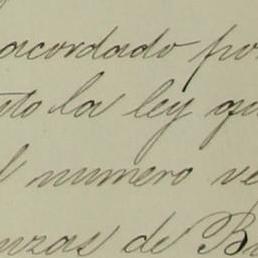 acordado po
to la ley qu
l numero ve
nzas de B